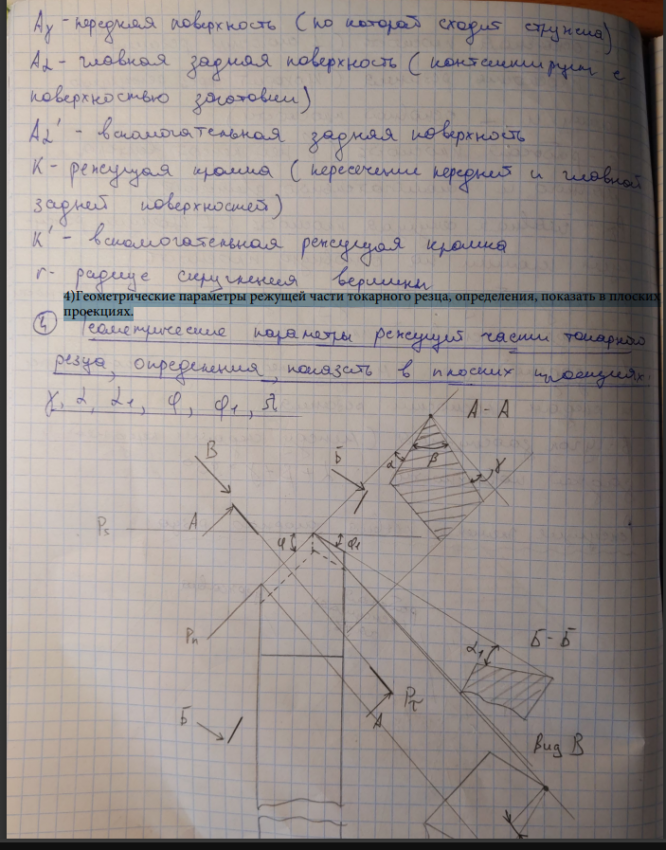 Aγ - передняя поверхность (по которой сходит стружка)
Aα - главная задняя поверхность (контактирует с
поверхностью заготовки)
Aα' - вспомогательная задняя поверхность
K - режущая кромка (пересечение передней и главной
задней поверхностей)
K' - вспомогательная режущая кромка
r - радиус скругления вершины
4)Геометрические параметры режущей части токарного резца, определения, показать в плоских
проекциях.
4 Геометрические параметры режущей части токарного
резца, определения, показать в плоских проекциях.
γ, α, α1, φ, φ1, λ
A - A
В
Б
α
β
γ
A
Ps
φ
φ1
Pn
Б - Б
α1
Pτ
Б
A
Вид В